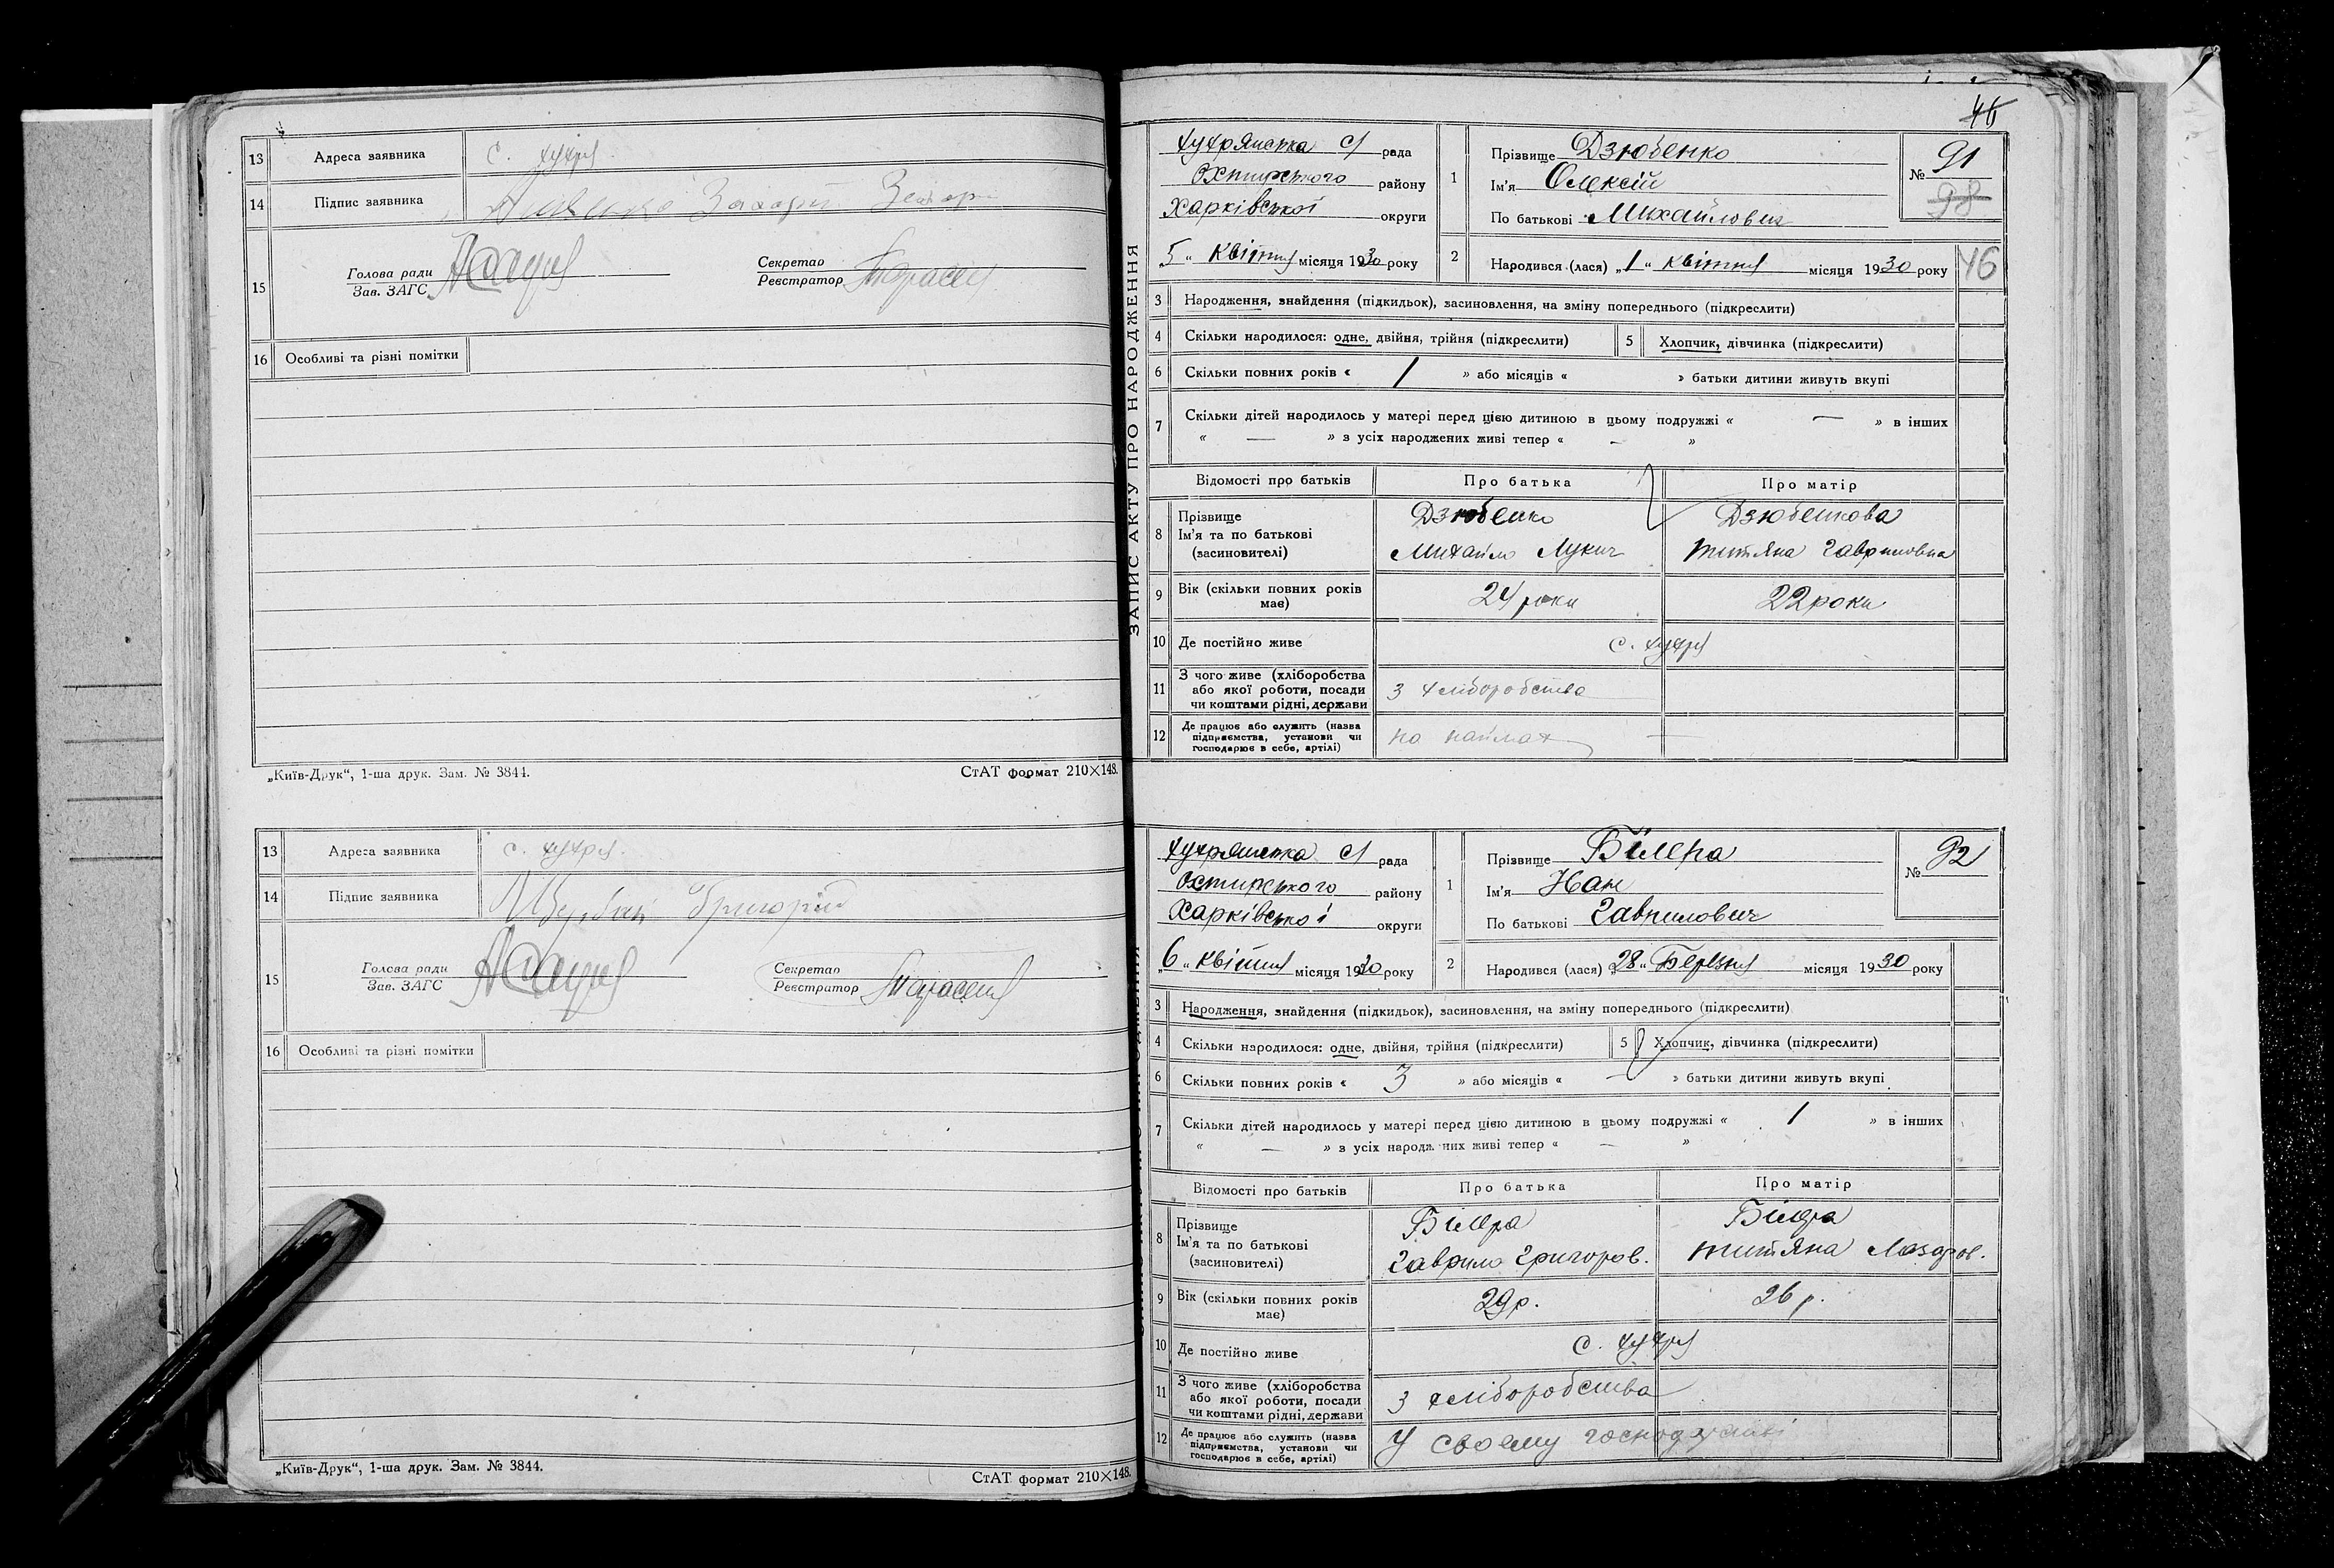 13 Адреса заявника с. Хухря
14 Підпис заявника Захар
15 Голова ради
Зав. ЗАГС
Секретар
Реєстратор
16 Особливі та різні помітки
„Київ-Друк“, 1-ша друк. Зам. № 3844.
СтАТ формат 210×148.
13 Адреса заявника с. Хухря.
14 Підпис заявника Григорій
15 Голова ради
Зав. ЗАГС
Секретар
Реєстратор
16 Особливі та різні помітки
„Київ-Друк“, 1-ша друк. Зам. № 3844.
СтАТ формат 210×148.
46
ЗАПИС АКТУ ПРО НАРОДЖЕННЯ
Хухрянська с/ рада
Охтирського району
Харківської округи
„5“ Квітня місяця 1930 року
1 Прізвище Дзюбенко
Ім'я Олексій
По батькові Михайлович
№ 91
98
2 Народився (лася) „1“ Квітня місяця 1930 року
46
3 Народження, знайдення (підкидьок), засиновлення, на зміну попереднього (підкреслити)
4 Скільки народилося: одне, двійня, трійня (підкреслити) 5 Хлопчик, дівчинка (підкреслити)
6 Скільки повних років « 1 » або місяців « » батьки дитини живуть вкупі
7 Скільки дітей народилось у матері перед цією дитиною в цьому подружжі « — » в інших
« — » з усіх народжених живі тепер « - »
Відомості про батьків Про батька Про матір
8 Прізвище Дзюбенко Дзюбенкова
Ім'я та по батькові Михайло Лукич Титяна Гавриловна
(засиновителі)
9 Вік (скільки повних років 24 роки 22 роки
має)
10 Де постійно живе с. Хухря
11 З чого живе (хліборобства
або якої роботи, посади з хліборобства
чи коштами рідні, держави
12 Де працює або служить (назва
підприємства, установи чи на наймах —
господарює в себе, артілі)
Хухрянська с/ рада
Охтирського району
Харківської округи
„6“ Квітня місяця 1930 року
1 Прізвище Білера
Ім'я Йван
По батькові Гаврилович
№ 92
2 Народився (лася) „28“ Березня місяця 1930 року
3 Народження, знайдення (підкидьок), засиновлення, на зміну попереднього (підкреслити)
4 Скільки народилося: одне, двійня, трійня (підкреслити) 5 Хлопчик, дівчинка (підкреслити)
6 Скільки повних років « 3 » або місяців « — » батьки дитини живуть вкупі
7 Скільки дітей народилось у матері перед цією дитиною в цьому подружжі « 1 » в інших
« — » з усіх народжених живі тепер « — »
Відомості про батьків Про батька Про матір
8 Прізвище Білера Білера
Ім'я та по батькові Гаврило Григоров. Титяна Лазаров.
(засиновителі)
9 Вік (скільки повних років 29 р. 26 р.
має)
10 Де постійно живе с. Хухря
11 З чого живе (хліборобства
або якої роботи, посади з хліборобства
чи коштами рідні, держави
12 Де працює або служить (назва
підприємства, установи чи У своєму господарстві
господарює в себе, артілі)